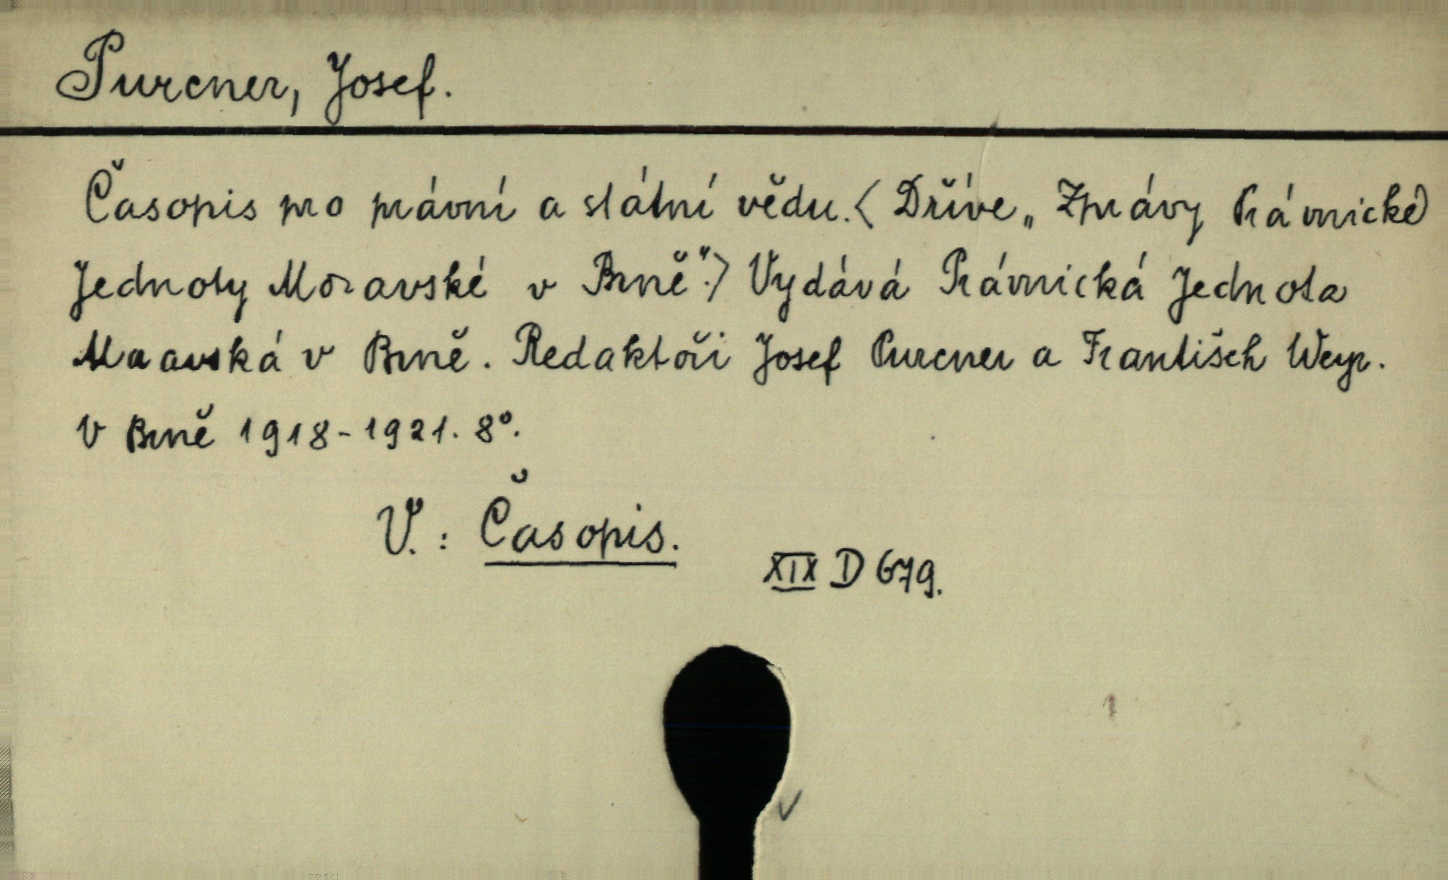 Purcner, Josef.
Časopis pro právní a státní vědu. < Dříve „Zprávy Právnické
Jednoty Moravské v Brně“.> Vydává Právnická Jednota
Moravská v Brně. Redaktoři Josef Purcner a František Weyr.
V Brně 1918-1921. 8°.
V.: Časopis.
XIX D 679.